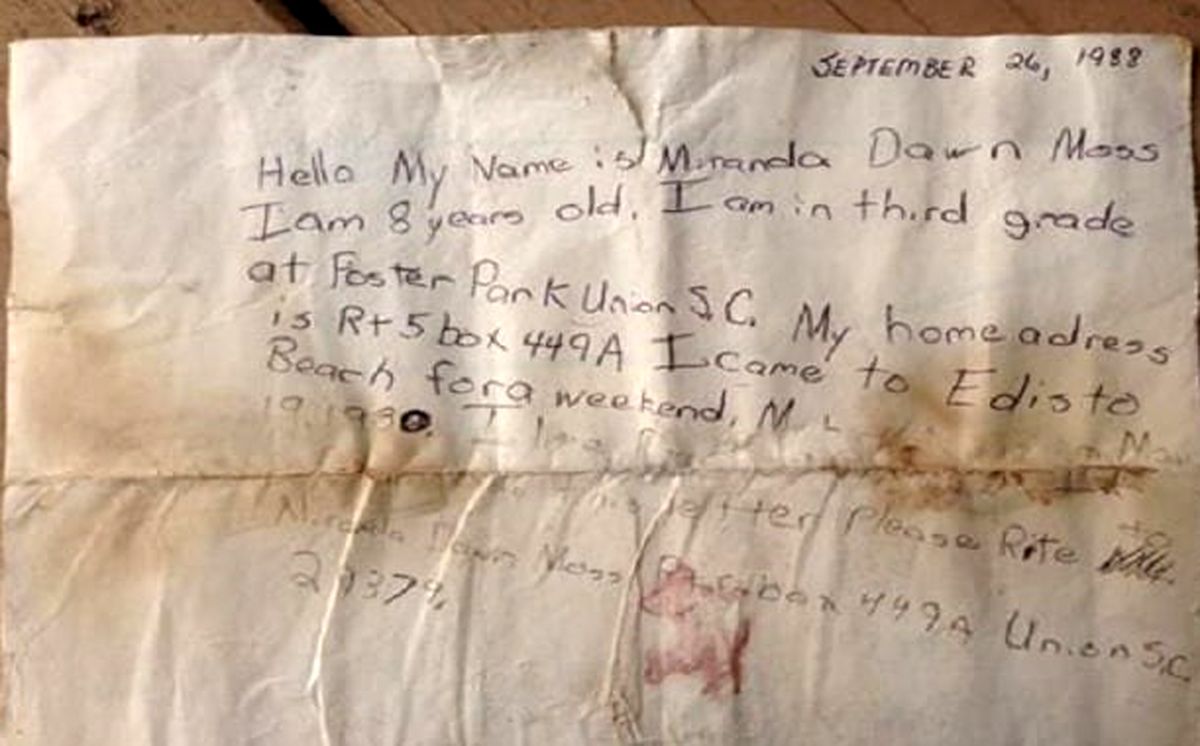 SEPTEMBER 26, 1988
Hello My Name is Miranda Dawn Moss
I am 8 years old. I am in third grade
at Foster Park Union S.C. My home adress
is Rt 5 box 449A I came to Edisto
Beach for a weekend. M
I
letter Please Rite to
Miranda Dawn Moss box 449A Union S.C.
29379.